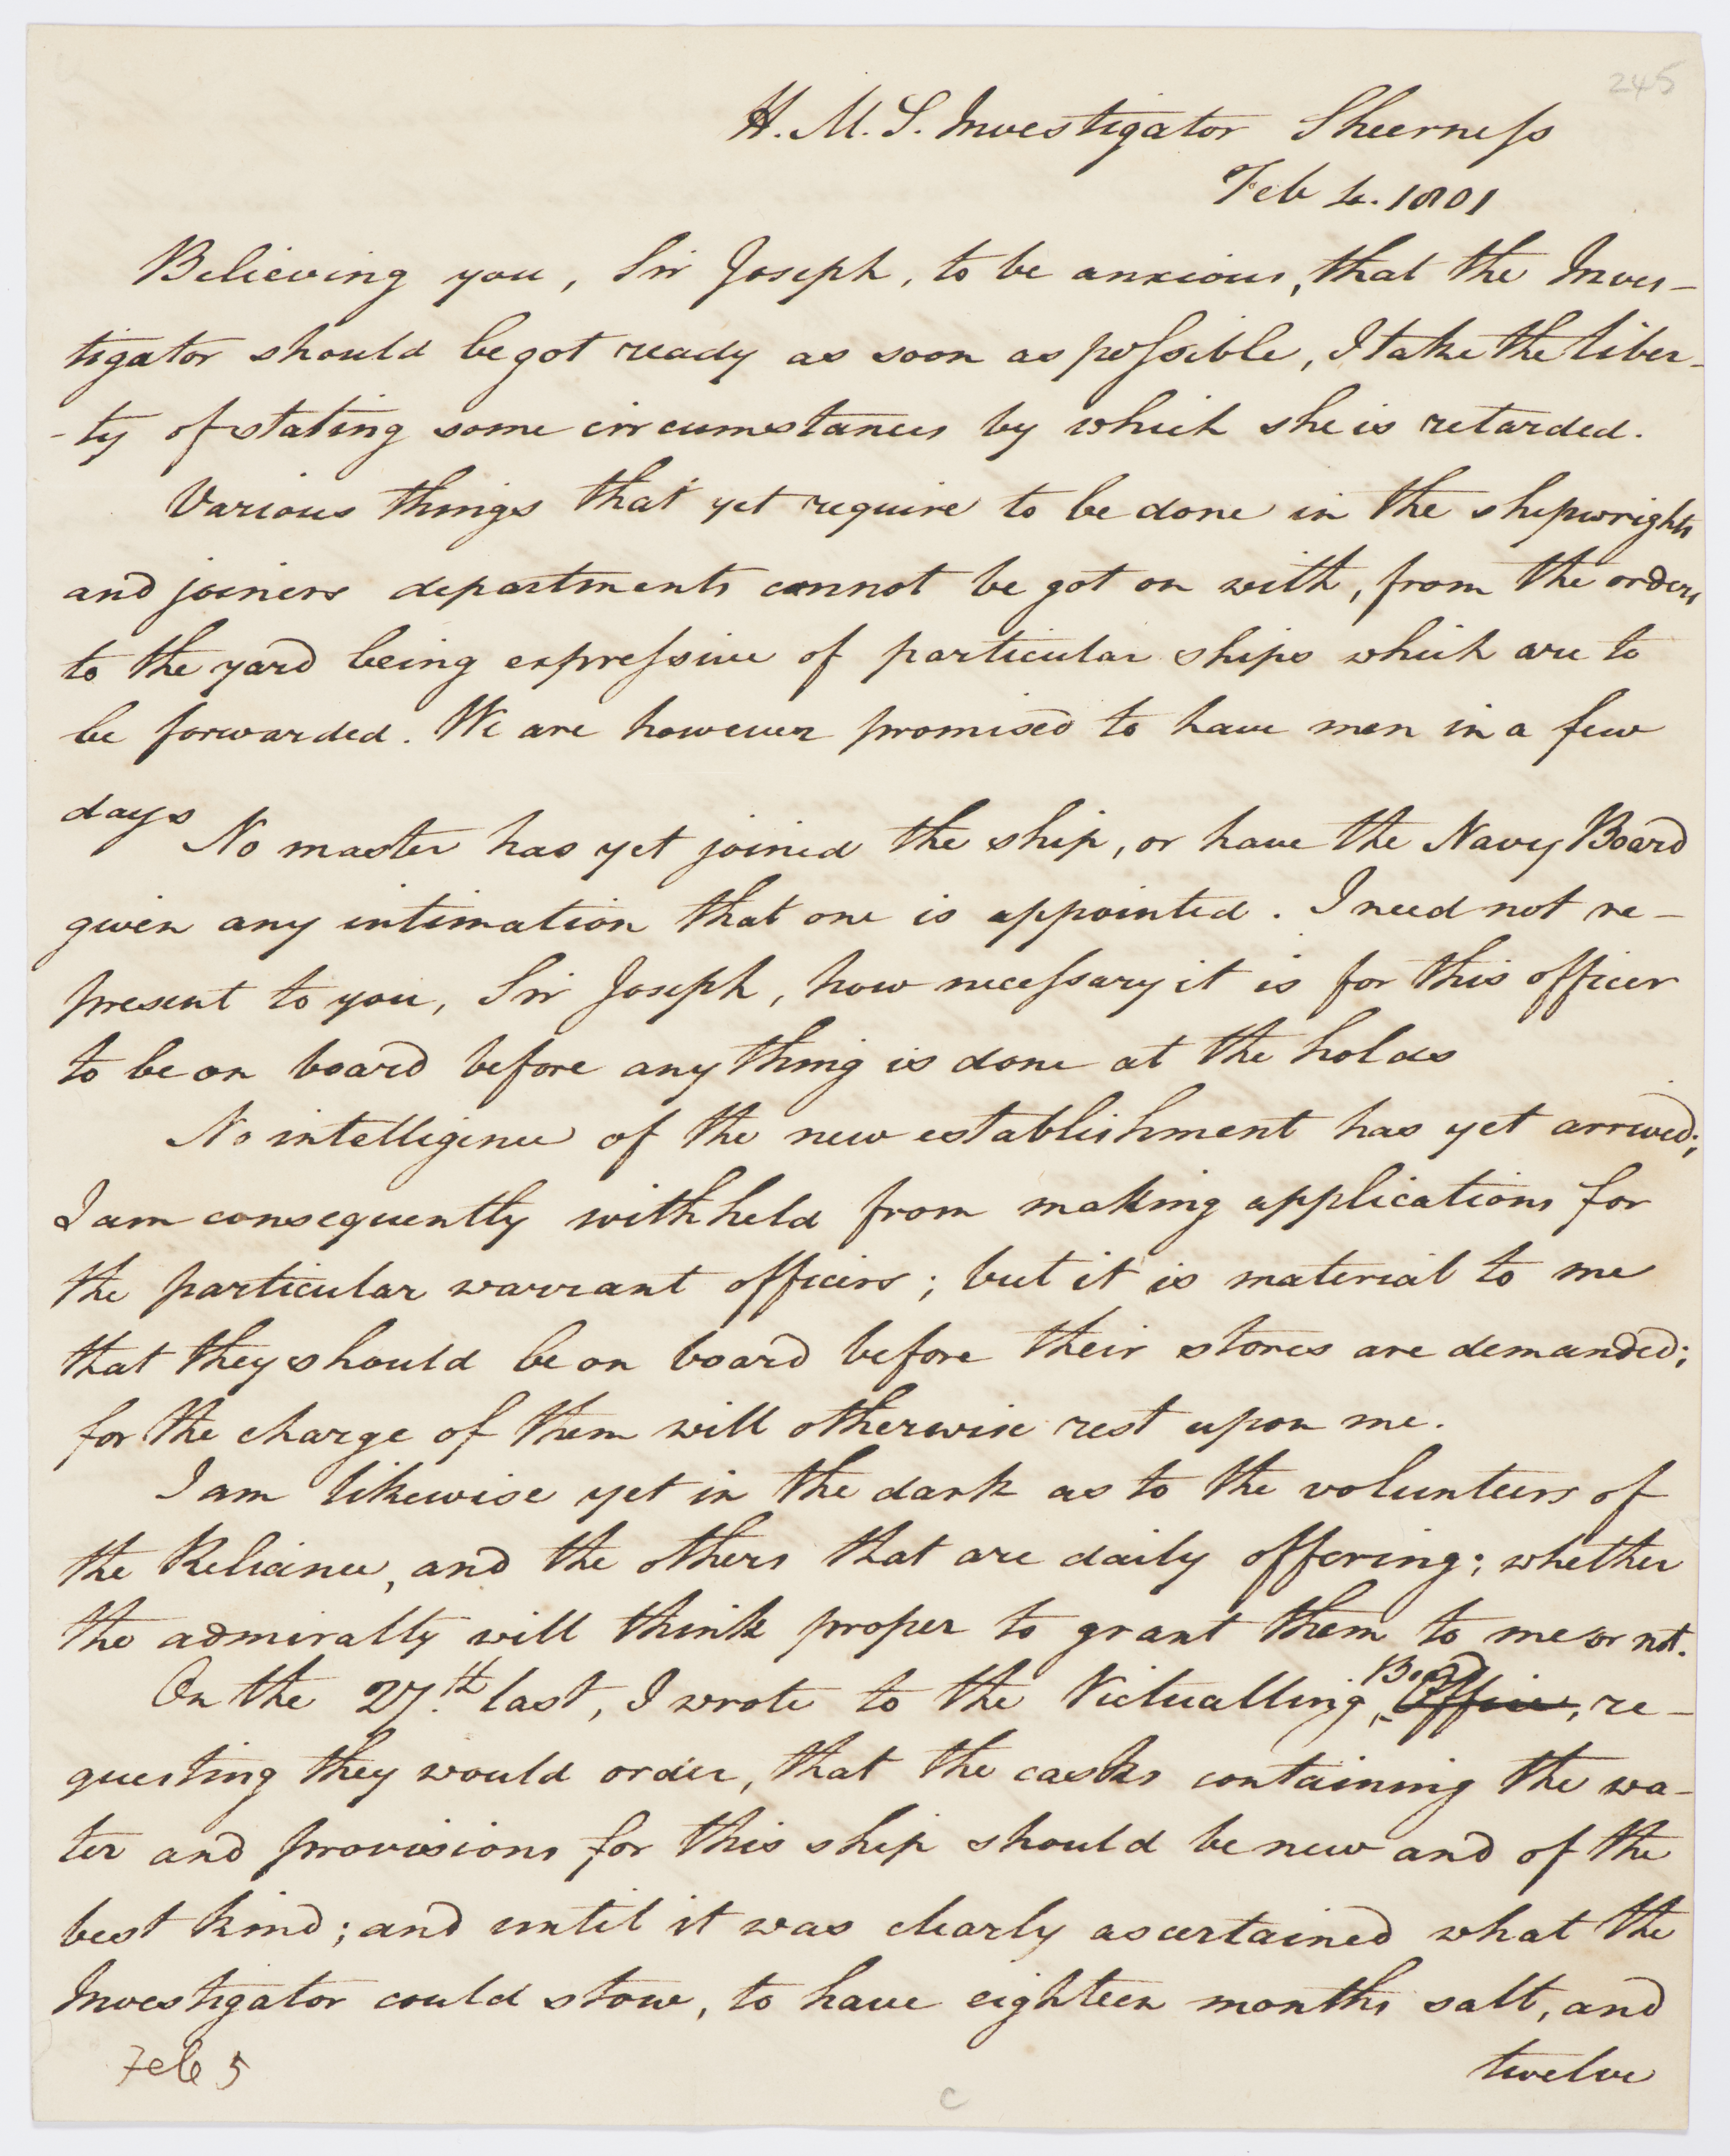 245
H. M. S. Investigator Sheerness
Feb 4. 1801
Believing you, Sir Joseph, to be anxious, that the Inves-
tigator should be got ready as soon as possible, I take the liber-
-ty of stating some circumstances by which she is retarded.
Various things that yet require to be done in the shipwrights
and joiners departments cannot be got on with, from the orders
to the yard being expressive of particular ships which are to
be forwarded. We are however promised to have men in a few
days
No master has yet joined the ship, or have the Navy Board
given any intimation that one is appointed. I need not re-
present to you, Sir Joseph, how necessary it is for this officer
to be on board before any thing is done at the holds
No intelligence of the new establishment has yet arrived;
I am consequently withheld from making applications for
the particular warrant officers; but it is material to me
that they should be on board before their stores are demanded;
for the charge of them will otherwise rest upon me.
I am likewise yet in the dark as to the volunteers of
the Reliance, and the others that are daily offering; whether
the admiralty will think proper to grant them to me or not.
On the 27.th last, I wrote to the Victualling Board Office, re-
questing they would order, that the casks containing the wa-
ter and provisions for this ship should be new and of the
best kind; and until it was clearly ascertained what the
Investigator could stow, to have eighteen months salt, and
twelve
Feb 5
C